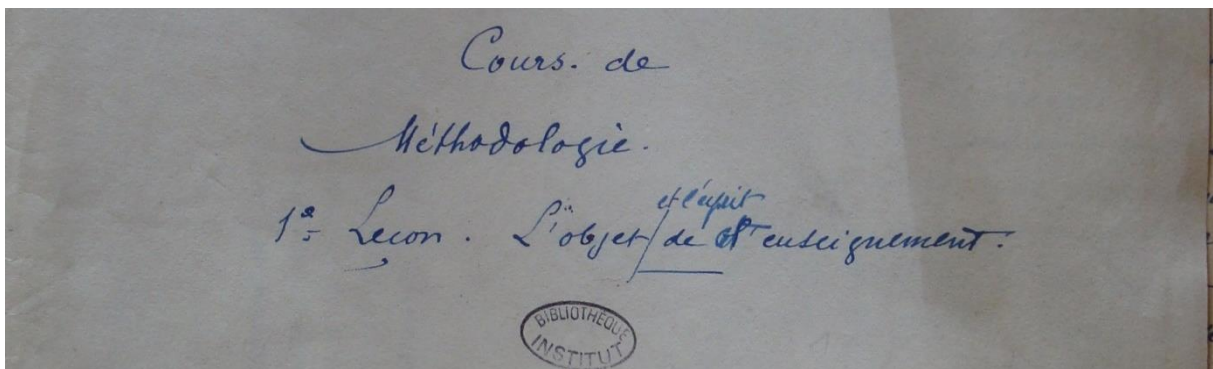 Cours. de
Méthodologie.
1e Leçon. L'objet et l'esprit de l'enseignement.
BIBLIOTHEQUE
INSTITUT